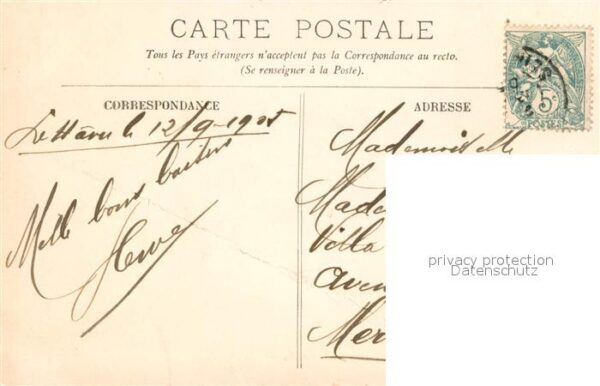 CARTE POSTALE
Tous les Pays étrangers n'acceptent pas la Correspondance au recto.
(Se renseigner à la Poste).
CORRESPONDANCE
ADRESSE
Le Hâvre le 12/9-1905
Mille bons baisers
Mademoiselle
Made
Villa
Aven
Mer
5c
privacy protection
Datenschutz